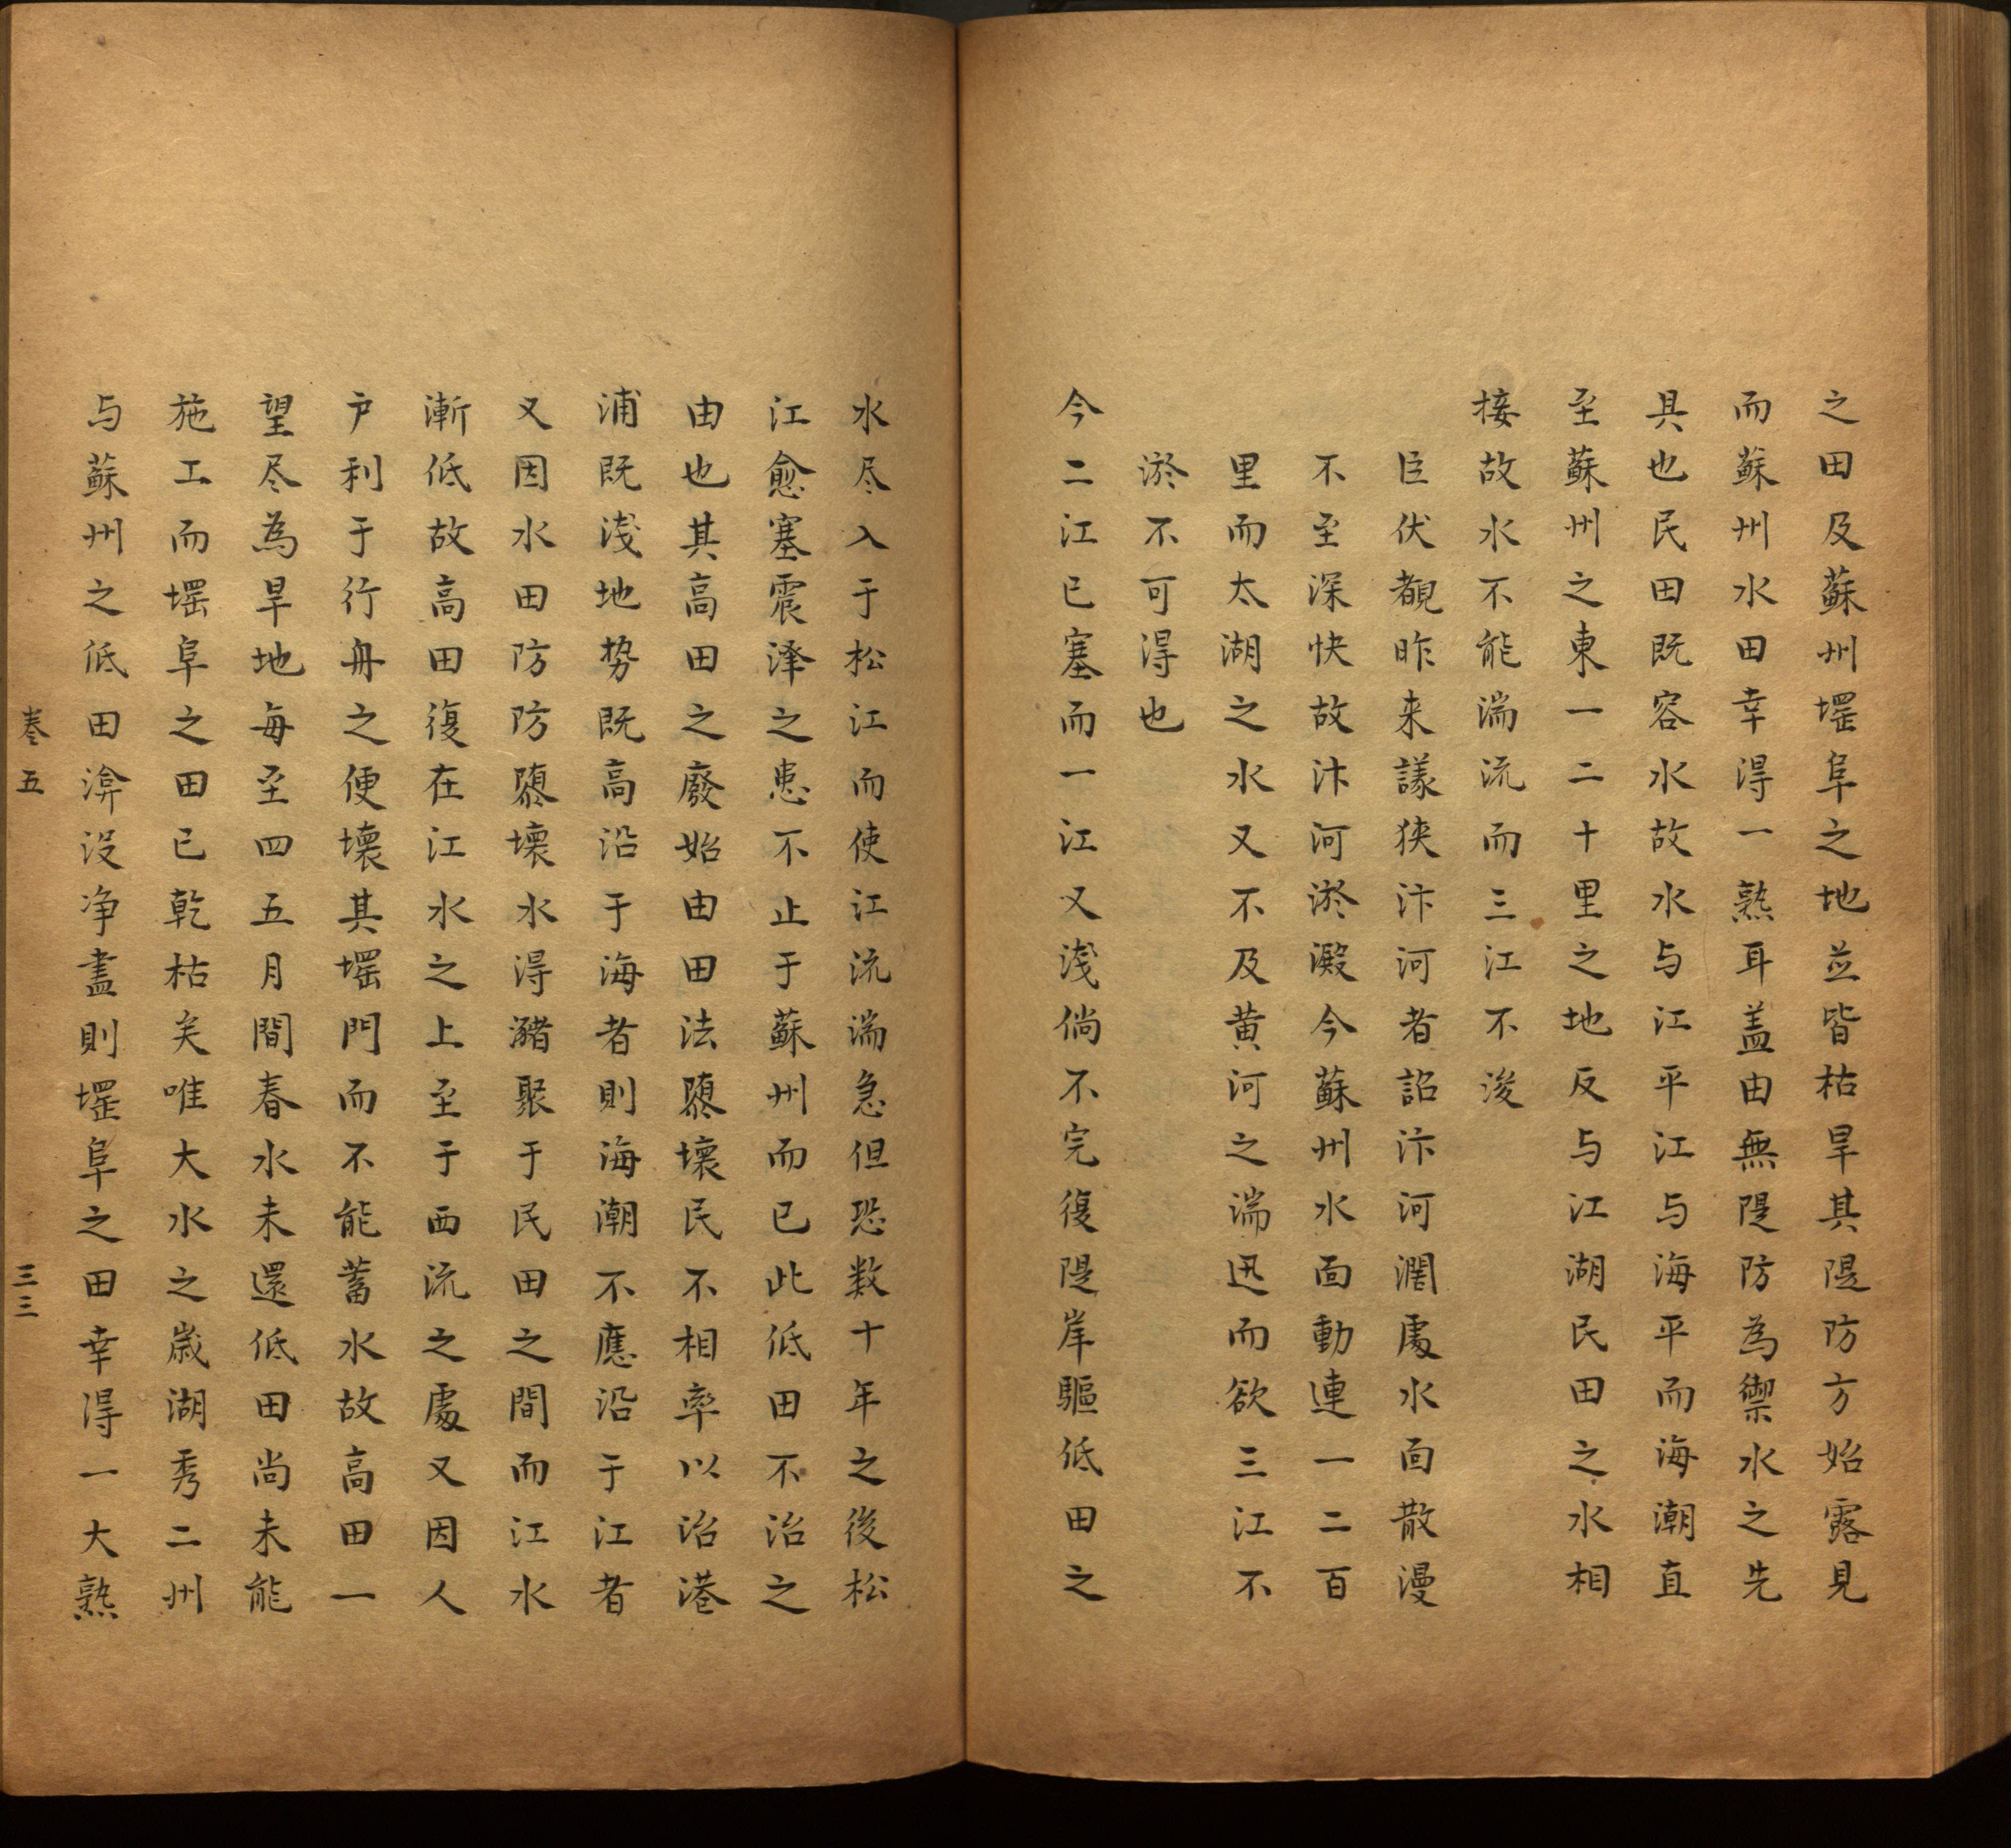 之田及蘇州堽阜之地並皆枯旱其隄防方始露見
而蘇州水田幸得一熟耳盖由無隄防為禦水之先
具也民田既容水故水与江平江与海平而海潮直
至蘇州之東一二十里之地反与江湖民田之水相
接故水不能湍流而三江不浚
臣伏覩昨来議狹汴河者詔汴河濶處水面散漫
不至深快故汴河淤澱今蘇州水面動連一二百
里而太湖之水又不及黄河之湍迅而欲三江不
淤不可得也
今二江已塞而一江又浅倘不完復隄岸驅低田之
水尽入于松江而使江流湍急但恐数十年之後松
江愈塞震泽之患不止于蘇州而已此低田不治之
由也其高田之廢始由田法隳壞民不相率以治港
浦既浅地势既高沿于海者則海潮不應沿于江者
又因水田防防隳壞水得瀦聚于民田之間而江水
漸低故高田復在江水之上至于西流之處又因人
户利于行舟之便壞其堽門而不能蓄水故高田一
望尽為旱地每至四五月間春水未還低田尚未能
施工而堽阜之田已乾枯矣唯大水之歳湖秀二州
与蘇州之低田渰没净盡則堽阜之田幸得一大熟
卷五
三三